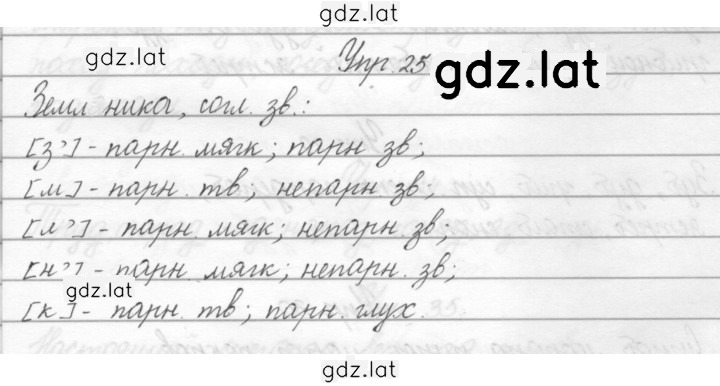 gdz.lat
gdz.lat
Упр. 25
gdz.lat
Земл ника, согл. зв.:
[з'] - парн. мягк; парн зв;
[м] - парн. тв; непарн. зв;
[л'] - парн. мягк; непарн. зв;
[н'] - парн. мягк; непарн. зв;
gdz.lat
[к] - парн. тв; парн. глух.
gdz.lat